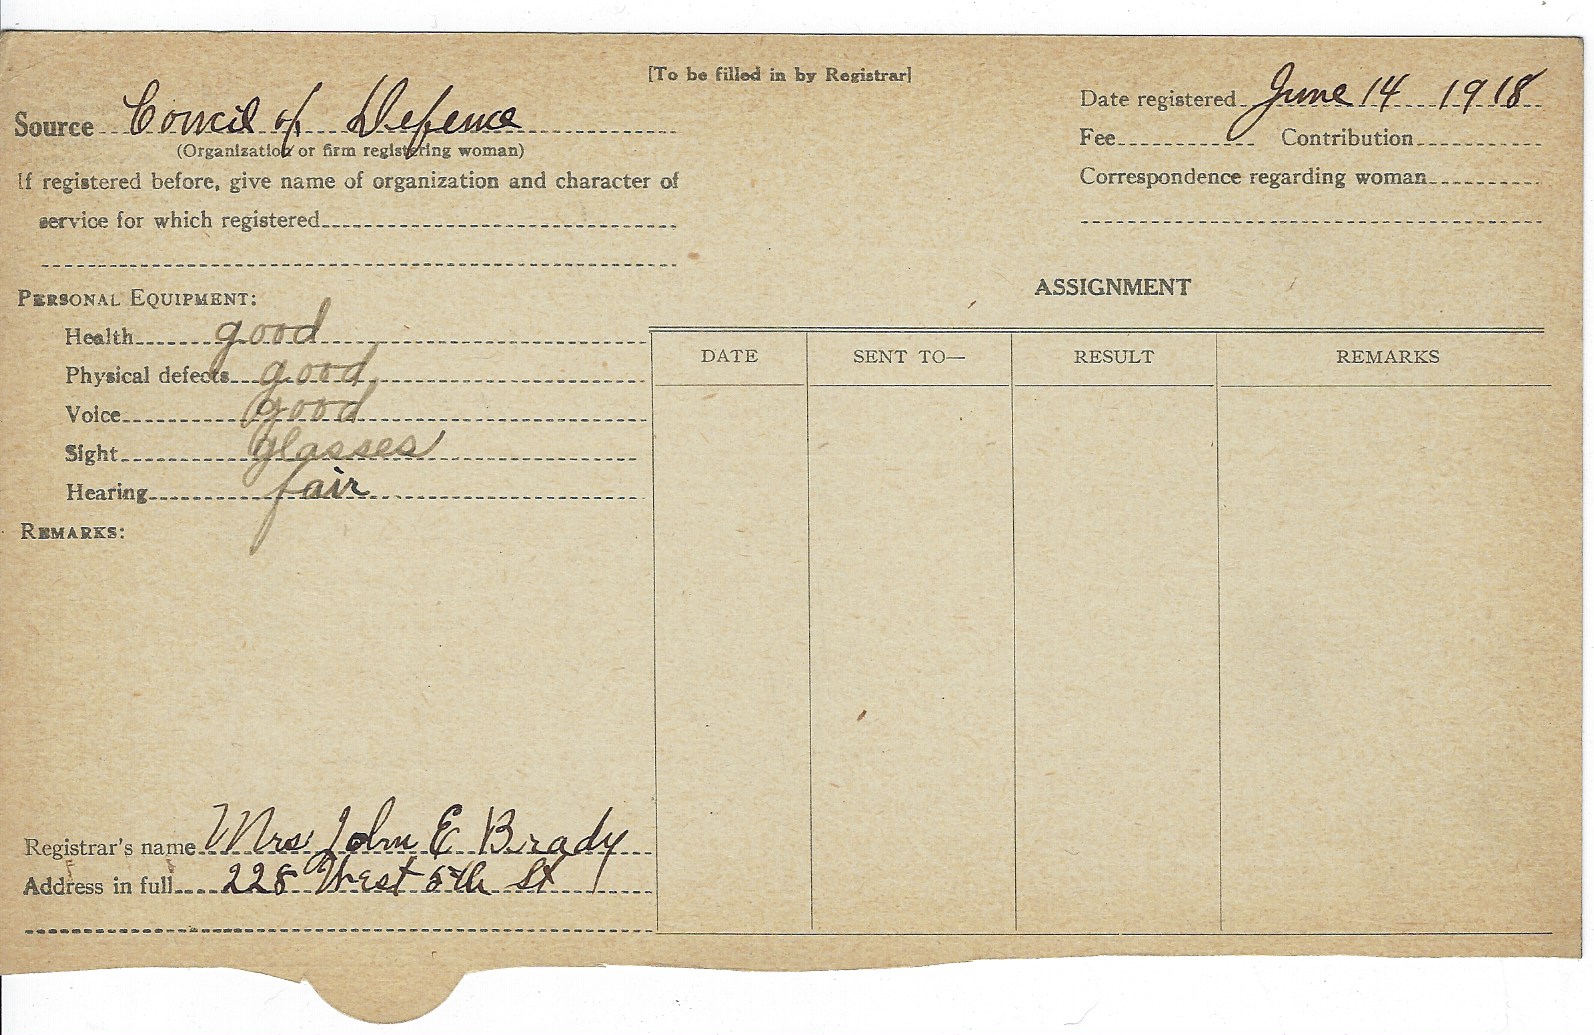 [To be filled in by Registrar]
Source Council of Defence
(Organization or firm registering woman)
If registered before, give name of organization and character of
service for which registered
Date registered June 14 1918
Fee Contribution
Correspondence regarding woman
PERSONAL EQUIPMENT:
Health good
Physical defects good
Voice good
Sight glasses
Hearing fair
REMARKS:
Registrar's name Mrs John E Brady
Address in full 228 West 5th St
ASSIGNMENT
DATE SENT TO— RESULT REMARKS